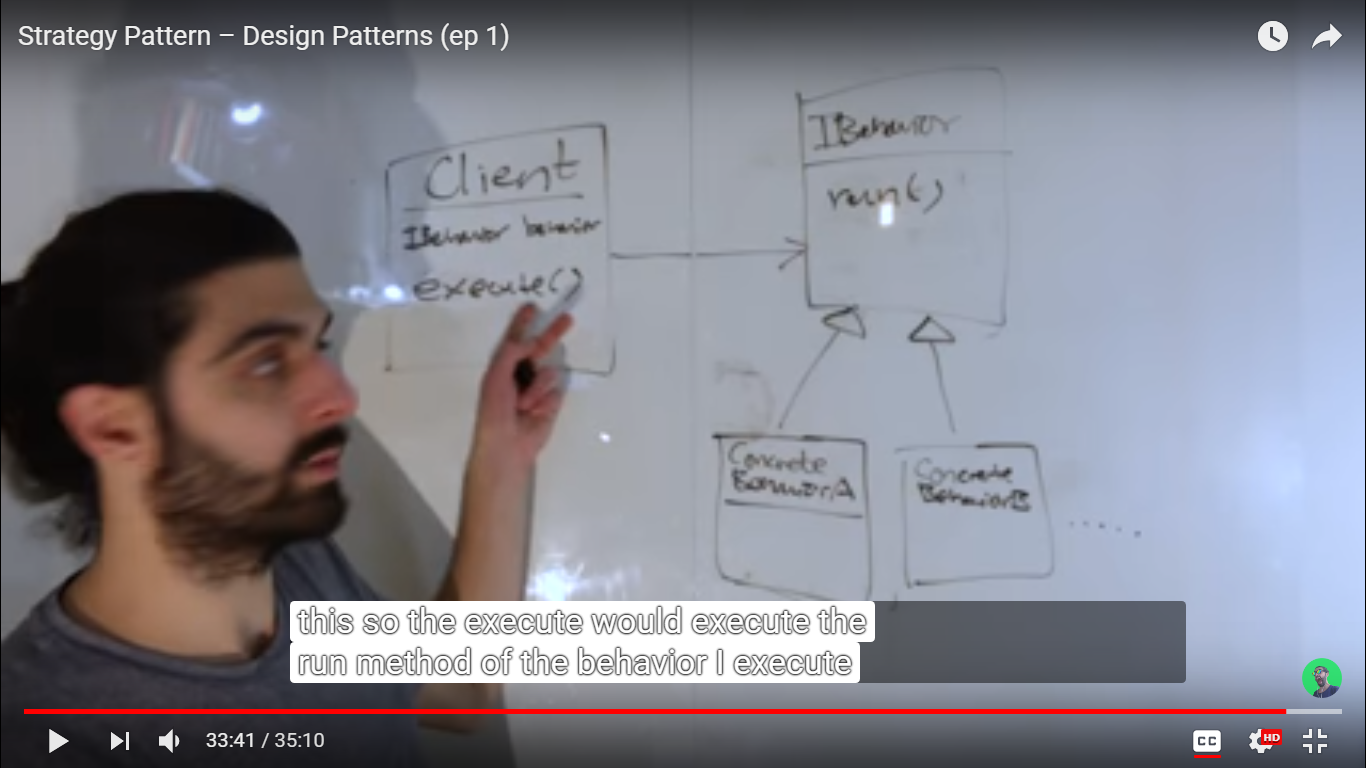 Strategy Pattern – Design Patterns (ep 1)
Client
IBehavior behavior
execute()
IBehavior
run()
Concrete
BehaviorA
Concrete
BehaviorB
this so the execute would execute the
run method of the behavior I execute
33:41 / 35:10
CC
HD